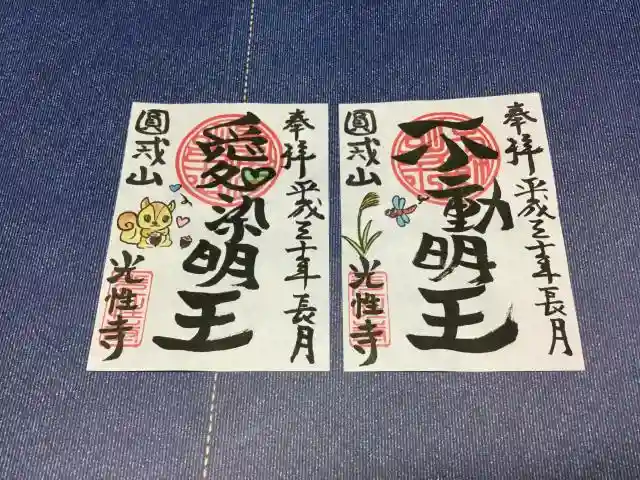 奉拝 平成三十年長月
愛染明王
圓戒山
光性寺
奉拝 平成三十年長月
不動明王
圓戒山
光性寺